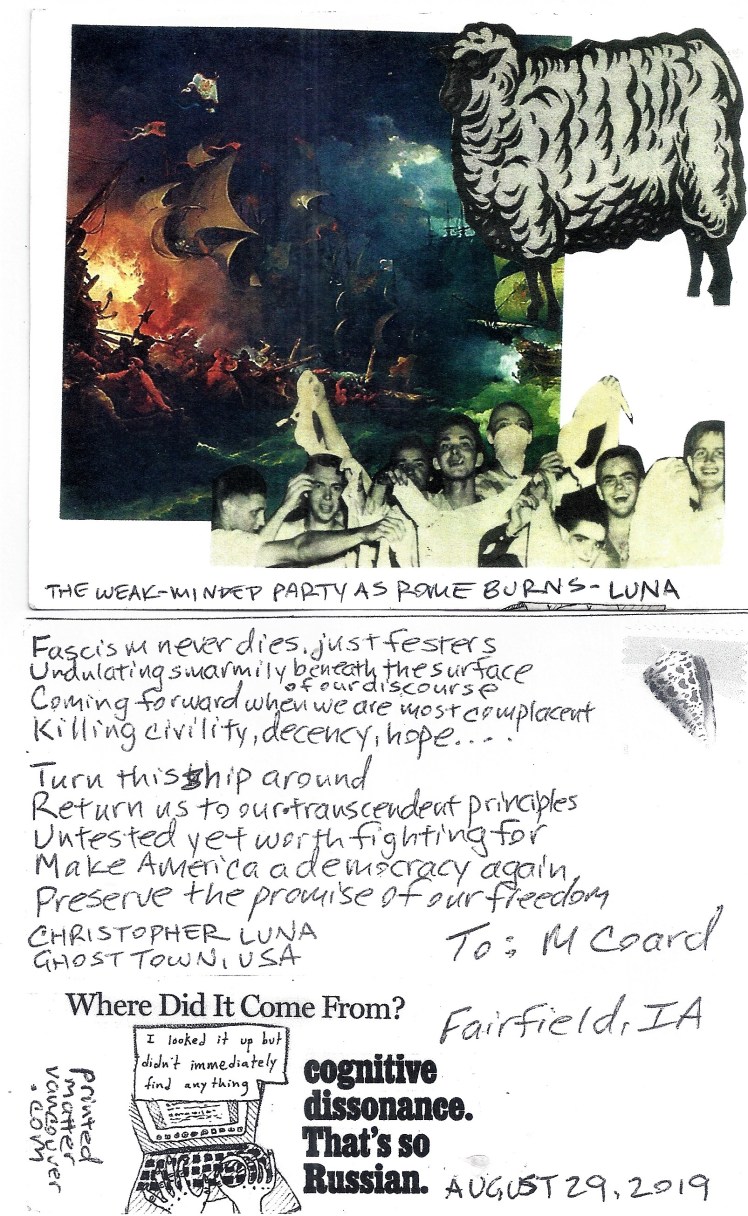 THE WEAK-MINDED PARTY AS ROME BURNS - LUNA
Fascism never dies, just festers
Undulating smarmily beneath the surface
of our discourse
Coming forward when we are most complacent
Killing civility, decency, hope....
Turn this ship around
Return us to our transcendent principles
Untested yet worth fighting for
Make America a democracy again,
Preserve the promise of our freedom
CHRISTOPHER LUNA
GHOST TOWN, USA
To: M Coard
Fairfield, IA
Where Did It Come From?
I looked it up but
didn't immediately
find any thing
cognitive
dissonance.
That's so
Russian.
printed
matter
vancouver
.com
AUGUST 29, 2019